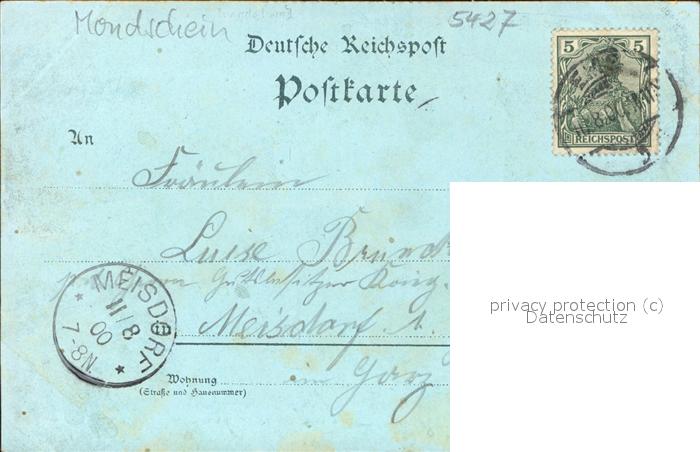 Mondschein
5427
Deutsche Reichspost
Postkarte
5 5
REICHSPOST
An
Fräulein
Luise
Gutsbesitzer König
Meisdorf
im Harz
MEISDORF
11/8
00
7-8N.
Wohnung
(Straße und Hausnummer)
privacy protection (c)
Datenschutz